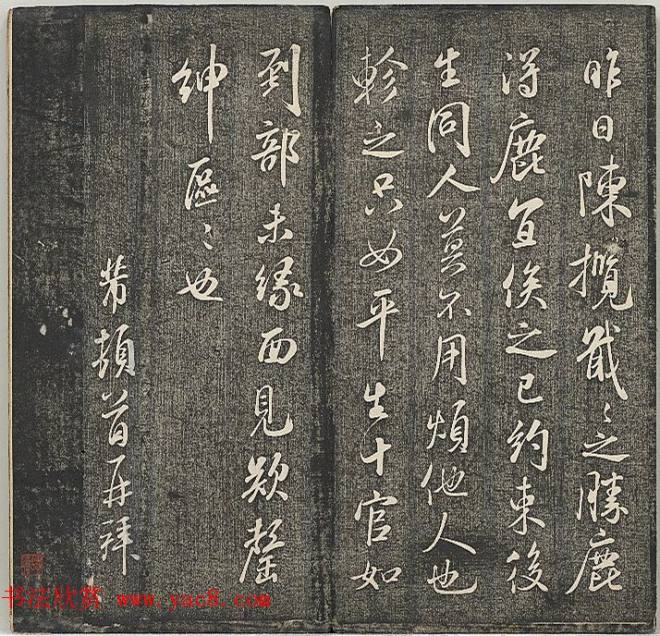 昨日陳攬戢〻之勝鹿
得鹿宜俟之已約束後
生同人莫不用煩他人也
軫之只如平生十官如
到部未緣面見欵罄
紳區〻也
芾頓首再拜
书法欣赏 www.yac8.com